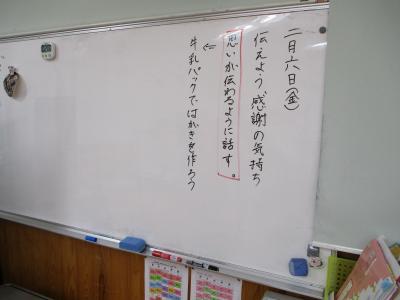 二月六日(金)
伝えよう感謝の気持ち
思いが伝わるように話す。
⇐
牛乳パックではがきを作ろう